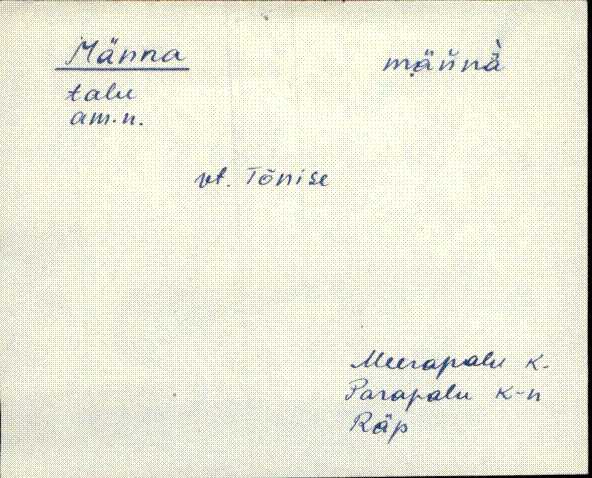 Männa
mäńnà
talu
am.n.
vt. Tõnise
Meerapalu k.
Parapalu k-n
Räp